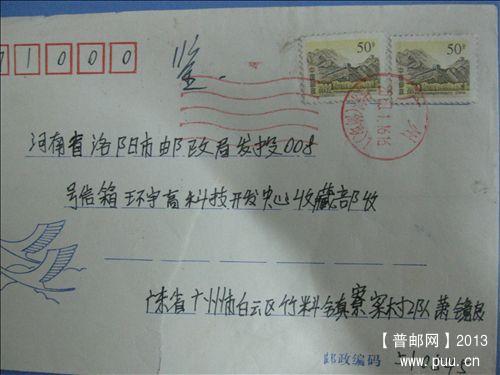 71000
鉴
50分 50分
河南省洛阳市邮政局发投008
号信箱环宇高科技开发中心收藏部收
广东省广州市白云区竹料镇寮采村2队萧镜良
邮政编码
【普邮网】2013
www.puu.cn